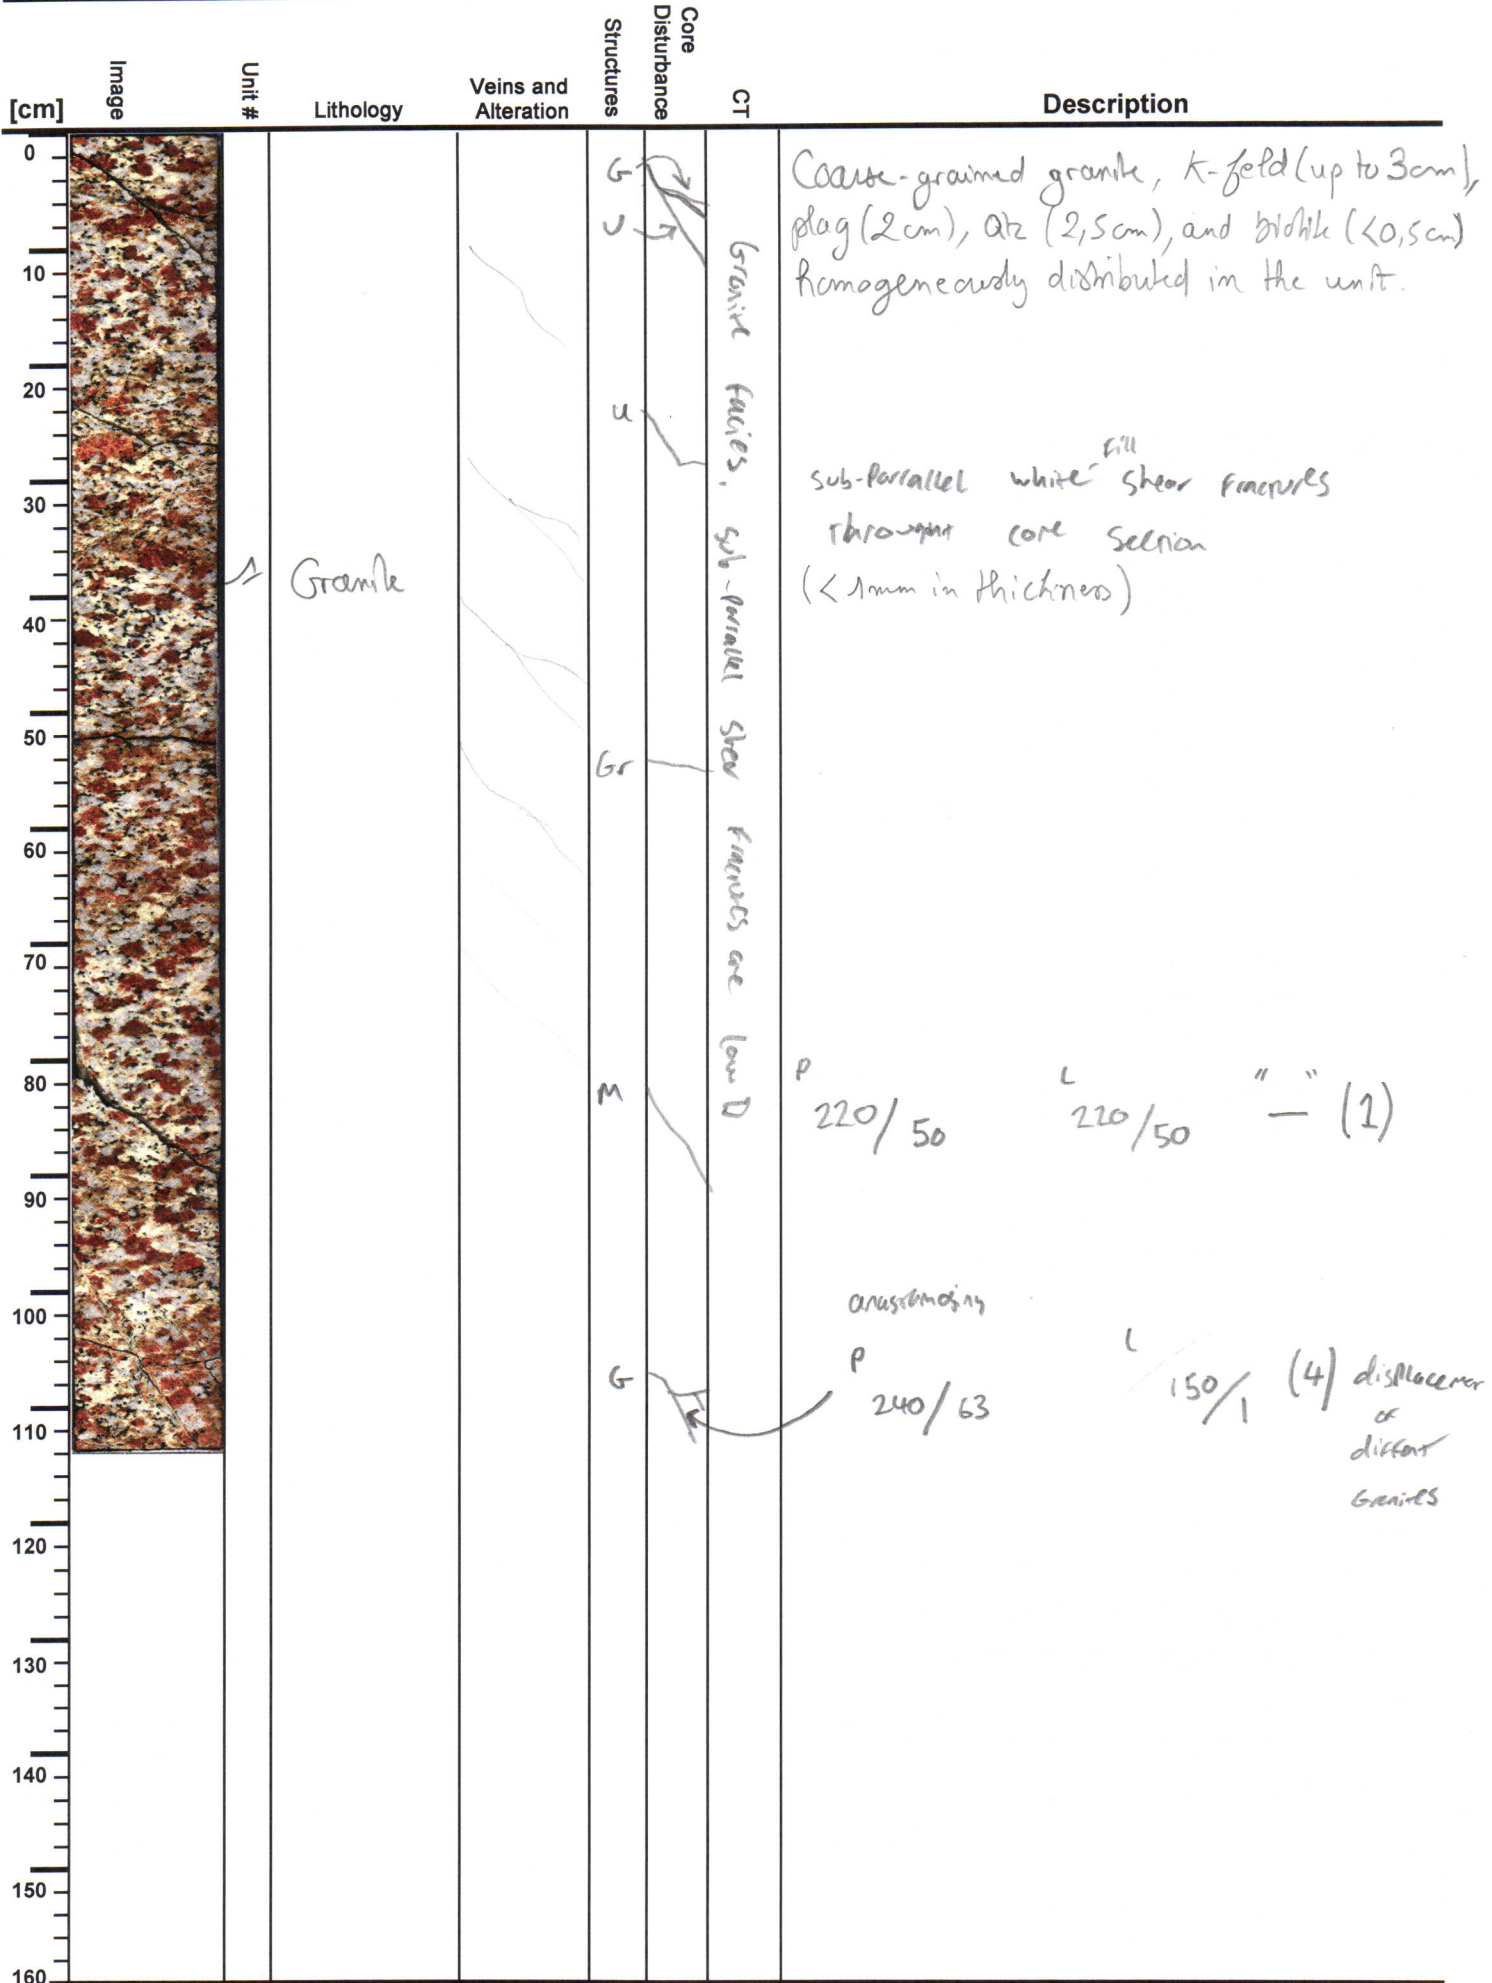 [cm]
Image
Unit #
Lithology
Veins and
Alteration
Structures
Core
Disturbance
CT
Description
0
10
20
30
40
50
60
70
80
90
100
110
120
130
140
150
160
1
Granite
G
U
u
Gr
M
G
Granite facies, sub-parallel shear fractures are low D
Coarse-grained granite, K-feld (up to 3cm),
plag (2cm), Qtz (2,5cm), and biotite (<0,5cm)
homogeneously distributed in the unit.
fill
sub-parrallel white shear fractures
core section
(<1mm in thickness)
P
220/50
L
220/50
" — " (1)
P
240/63
L
150/1
(4) displacemen
of
Granites